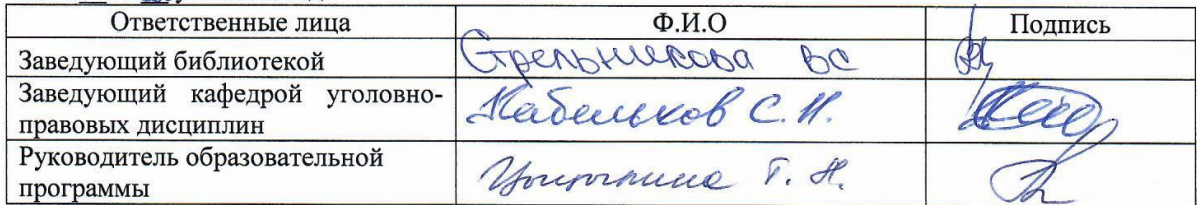 Ответственные лица Ф.И.О Подпись
Заведующий библиотекой Стрельникова ВС
Заведующий кафедрой уголовно-
правовых дисциплин Кабельков С.Н.
Руководитель образовательной
программы Т. Н.